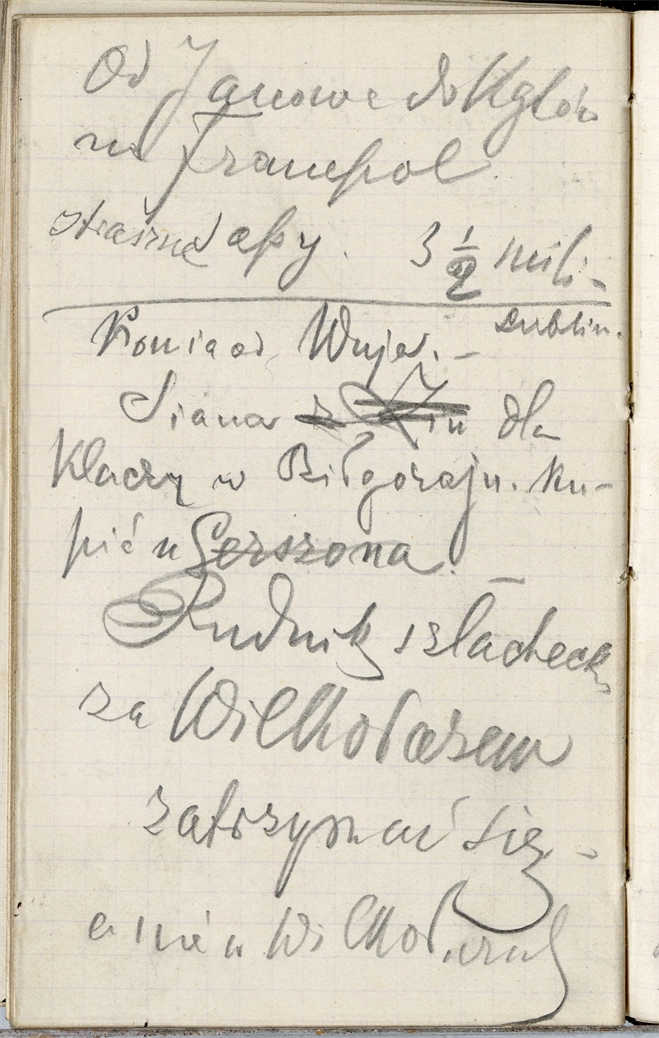 Od Janowa do Kglów
na Frampol
straszne łapy. 3 1/2 mili -
Lublin.
Konia od Wuja. -
Siana dla
klaczy w Biłgoraju. Ku-
pić u Gerszona. -
Rudnik szlachecki
za Wilkołazem
zatrzymać się -
a nie w Wilkołazach